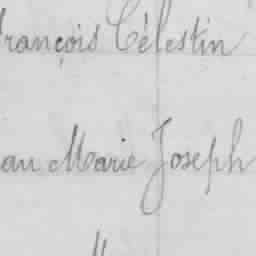 François Célestin
an Marie Joseph